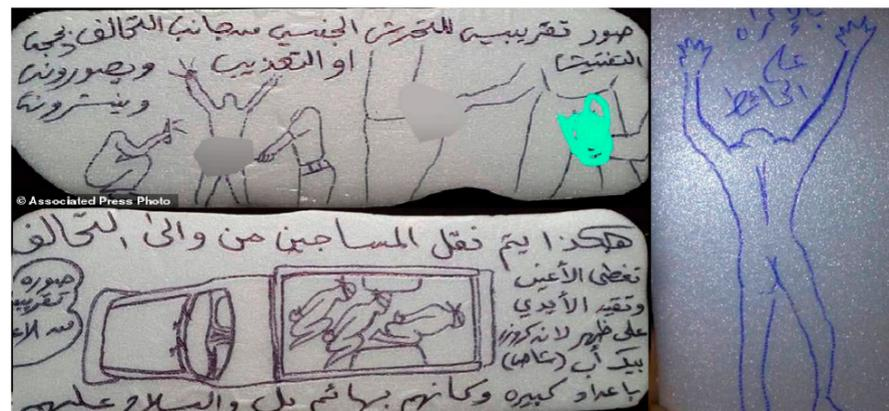 صور تقريبية للتحرش الجنسي من جانب التحالف بحجة
التفتيش او التعذيب ويصورونها
وينشرونها
© Associated Press Photo
هكذا يتم نقل المساجين من والى التحالف
تغطى الأعين
وتقيد الأيدي
على ظهر لاندكروزر
بيك أب (شاص)
باعداد كبيره وكأنهم بهائم بل والسلاح عليهم
صوره
تقريبية
على
الحائط